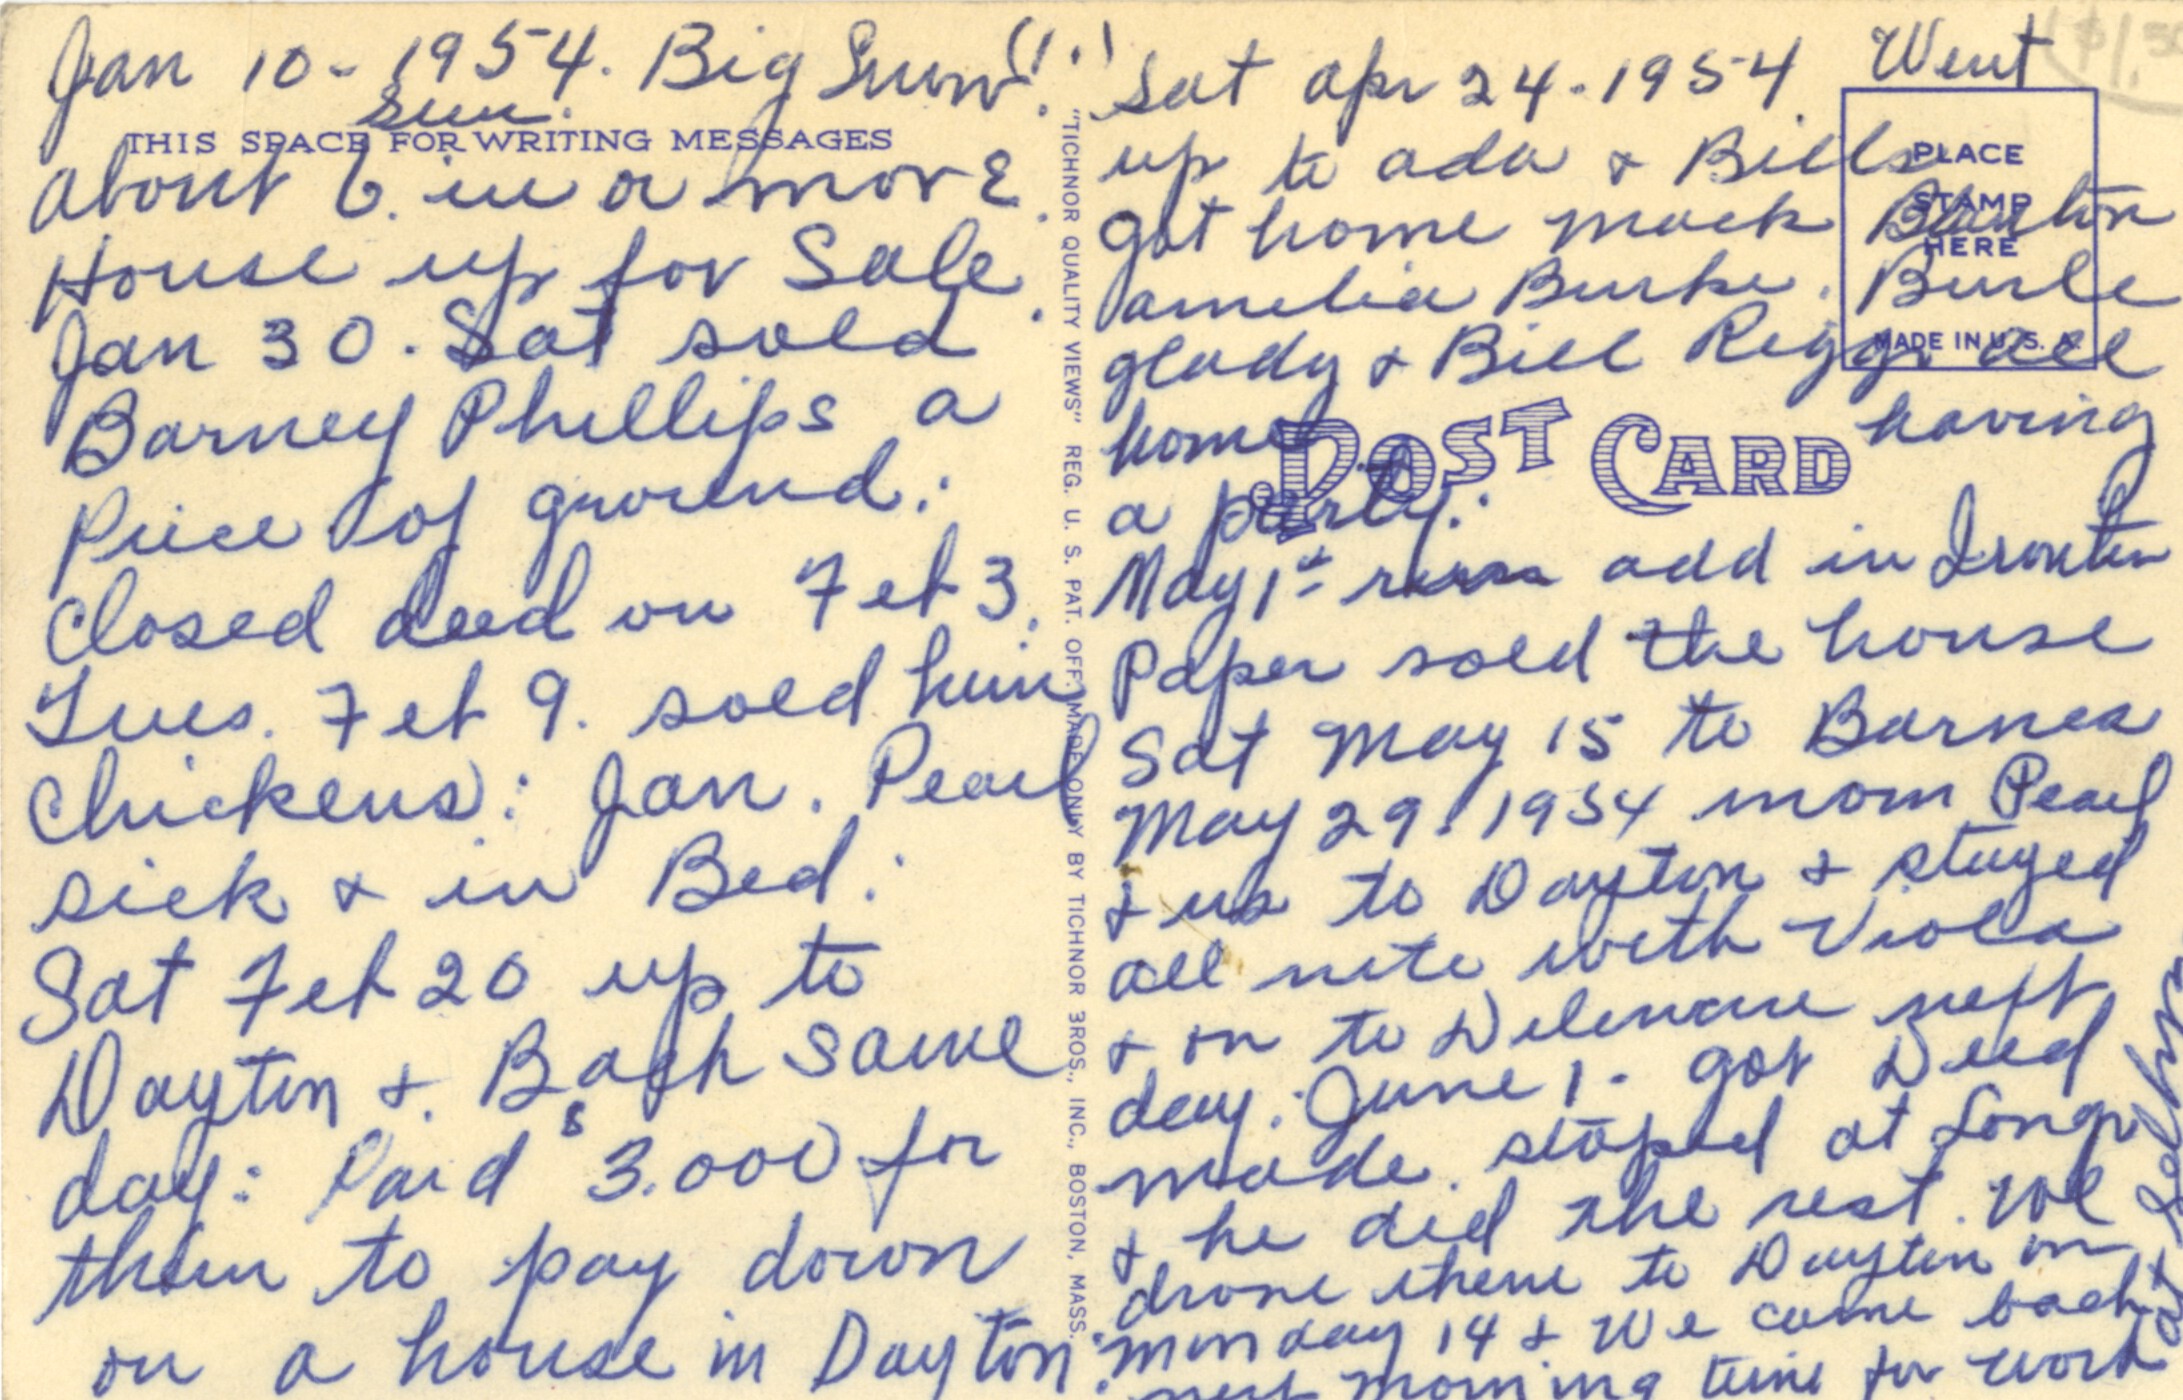 Jan 10 - 1954. Big Snow (!.)
Sun.
THIS SPACE FOR WRITING MESSAGES
about 6. in or more.
House up for Sale.
Jan 30. Sat sold
Barney Phillips a
Piece of ground.
Closed deed on Feb 3.
Tues. Feb 9. sold him
Chickens: Jan. Pearl
sick & in Bed:
Sat Feb 20 up to
Dayton & Back same
day: Paid $3.000 for
them to pay down
on a house in Dayton.
"TICHNOR QUALITY VIEWS" REG. U. S. PAT. OFF. MADE ONLY BY TICHNOR BROS., INC., BOSTON, MASS.
$1.50
Sat Apr 24. 1954 Went
up to Ada & Bills
got home Mack
Amelia Burke. Burle
Glady & Bill Riggs all
home having
a party.
PLACE
STAMP
HERE
MADE IN U. S. A.
POST CARD
May 1st run add in Ironton
Paper sold the house
Sat May 15 to Barnes
May 29. 1954 mom Pearl
& us to Dayton & stayed
all nite with Viola
& on to Delaware next
day. June 1. got Deed
made. stoped at Longs
& he did the rest. We
drove there to Dayton on
Monday 14 & We came back
next morning time for work